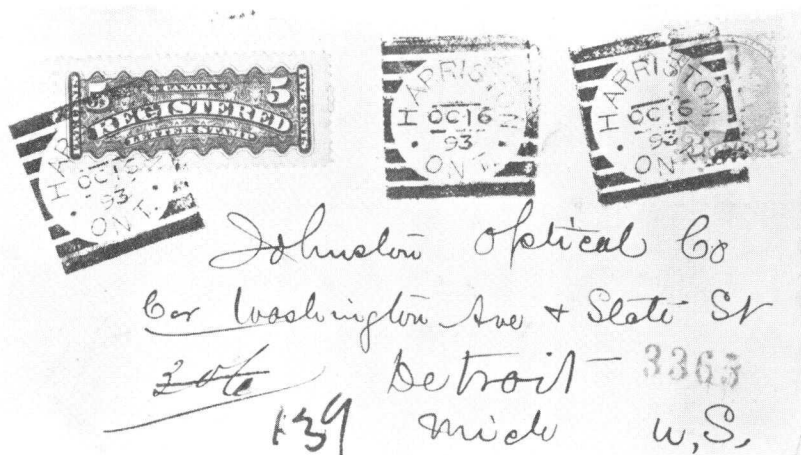 CANADA
5 5
REGISTERED
LETTER STAMP
HARRISTON
OC 16
93
ONT.
HARRISTON
OC 16
93
ONT.
HARRISTON
OC 16
93
ONT.
3 3
Johnston Optical Co
Cor Washington Ave + State St
Detroit 3363
139 Mich U.S.